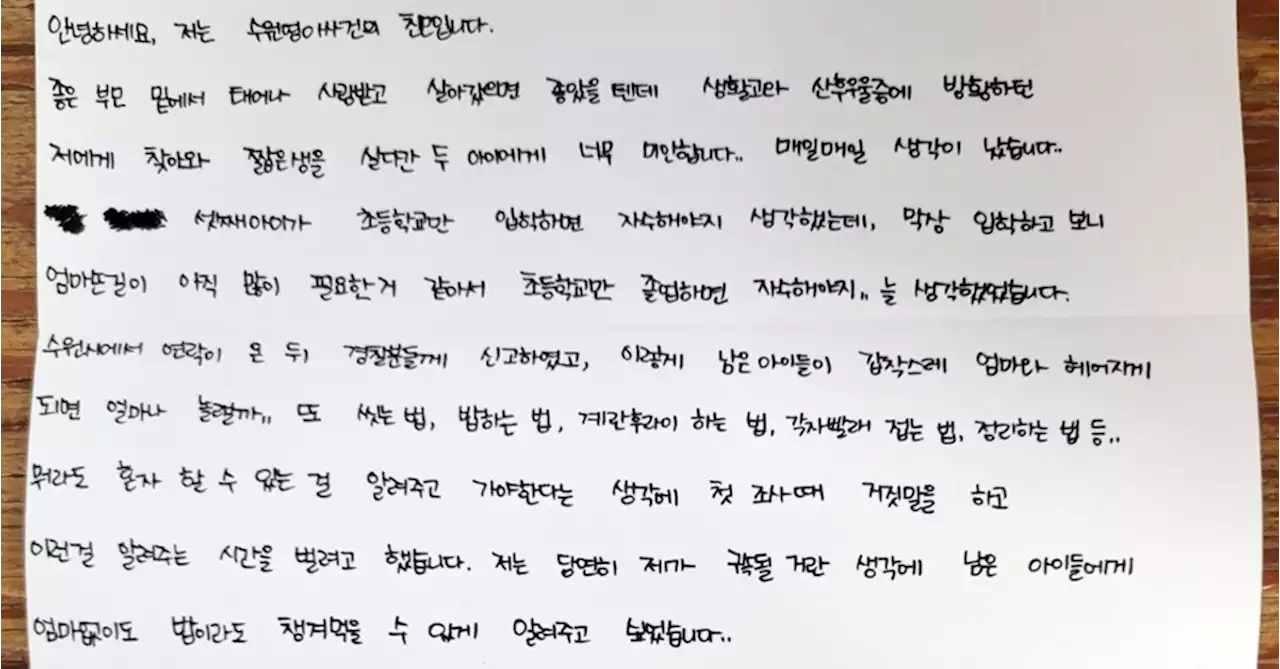 안녕하세요, 저는 수원영아사건의 친모입니다.
좋은 부모 밑에서 태어나 사랑받고 살아갔으면 좋았을텐데 생활고와 산후우울증에 방황하던
저에게 찾아와 짧은생을 살다간 두 아이에게 너무 미안합니다.. 매일매일 생각이 났습니다..
셋째아이가 초등학교만 입학하면 자수해야지 생각했는데, 막상 입학하고 보니
엄마손길이 아직 많이 필요한거 같아서 초등학교만 졸업하면 자수해야지,, 늘 생각했었습니다.
수원시에서 연락이 온 뒤 경찰분들께 신고하였고, 이렇게 남은아이들이 갑작스레 엄마와 헤어지게
되면 얼마나 놀랄까,, 또 씻는법, 밥하는 법, 계란후라이 하는 법, 각자빨래 접는 법, 정리하는 법 등..
뭐라도 혼자 할 수 있는 걸 알려주고 가야한다는 생각에 첫 조사때 거짓말을 하고
이런걸 알려주는 시간을 벌려고 했습니다. 저는 당연히 제가 구속될 거란 생각에 남은 아이들에게
엄마없이도 밥이라도 챙겨먹을 수 있게 알려주고 싶었습니다..